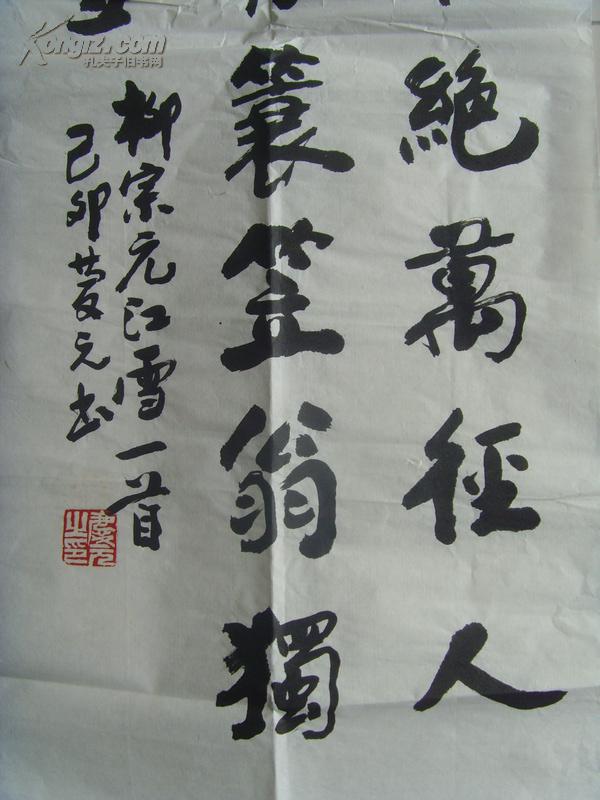 絕萬徑人
蓑笠翁獨
柳宗元江雪一首
己卯蔓元书
Kongfz.com
孔夫子旧书网